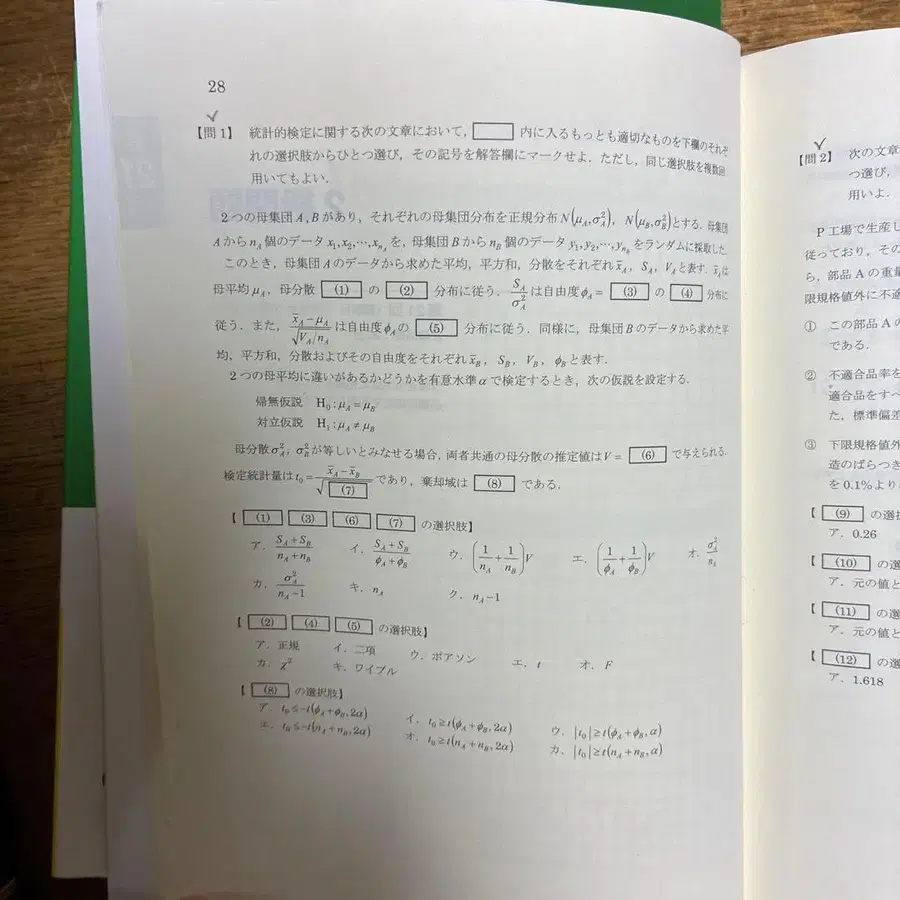 28
【問1】 統計的検定に関する次の文章において，□内に入るもっとも適切なものを下欄のそれぞ
れの選択肢からひとつ選び，その記号を解答欄にマークせよ．ただし，同じ選択肢を複数回
用いてもよい．
2つの母集団A,Bがあり，それぞれの母集団分布を正規分布N(μ_A,σ_A^2)，N(μ_B,σ_B^2)とする．母集団
Aからn_A個のデータx_1,x_2,…,x_{n_A}を，母集団Bからn_B個のデータy_1,y_2,…,y_{n_B}をランダムに採取した．
このとき，母集団Aのデータから求めた平均，平方和，分散をそれぞれx̄_A，S_A，V_Aと表す．x̄_Aは
母平均μ_A，母分散 (1) の (2) 分布に従う．S_A/σ_A^2は自由度φ_A＝ (3) の (4) 分布に
従う．また，(x̄_A−μ_A)/√(V_A/n_A)は自由度φ_Aの (5) 分布に従う．同様に，母集団Bのデータから求めた平
均，平方和，分散およびその自由度をそれぞれx̄_B，S_B，V_B，φ_Bと表す．
2つの母平均に違いがあるかどうかを有意水準αで検定するとき，次の仮説を設定する．
帰無仮説 H_0:μ_A＝μ_B
対立仮説 H_1:μ_A≠μ_B
母分散σ_A^2，σ_B^2が等しいとみなせる場合，両者共通の母分散の推定値はV＝ (6) で与えられる．
検定統計量はt_0＝(x̄_A−x̄_B)/√(7) であり，棄却域は (8) である．
【 (1) (3) (6) (7) の選択肢】
ア．(S_A+S_B)/(n_A+n_B) イ．(S_A+S_B)/(φ_A+φ_B) ウ．(1/n_A+1/n_B)V エ．(1/φ_A+1/φ_B)V オ．σ_A^2/n_A
カ．σ_A^2/(n_A−1) キ．n_A ク．n_A−1
【 (2) (4) (5) の選択肢】
ア．正規 イ．二項 ウ．ポアソン エ．t オ．F
カ．χ^2 キ．ワイブル
【 (8) の選択肢】
ア．t_0≤−t(φ_A+φ_B,2α) イ．t_0≥t(φ_A+φ_B,2α) ウ．|t_0|≥t(φ_A+φ_B,α)
エ．t_0≤−t(n_A+n_B,2α) オ．t_0≥t(n_A+n_B,2α) カ．|t_0|≥t(n_A+n_B,α)
【問2】 次の文章
つ選び，
用いよ．
P工場で生産し
従っており，その
ら，部品Aの重量
限規格値外に不適
① この部品Aの
である．
② 不適合品率を
適合品をすべ
た，標準偏差
③ 下限規格値外
造のばらつき
を0.1%より
【 (9) の選択
ア．0.26
【 (10) の選
ア．元の値と
【 (11) の選
ア．元の値と
【 (12) の選
ア．1.618